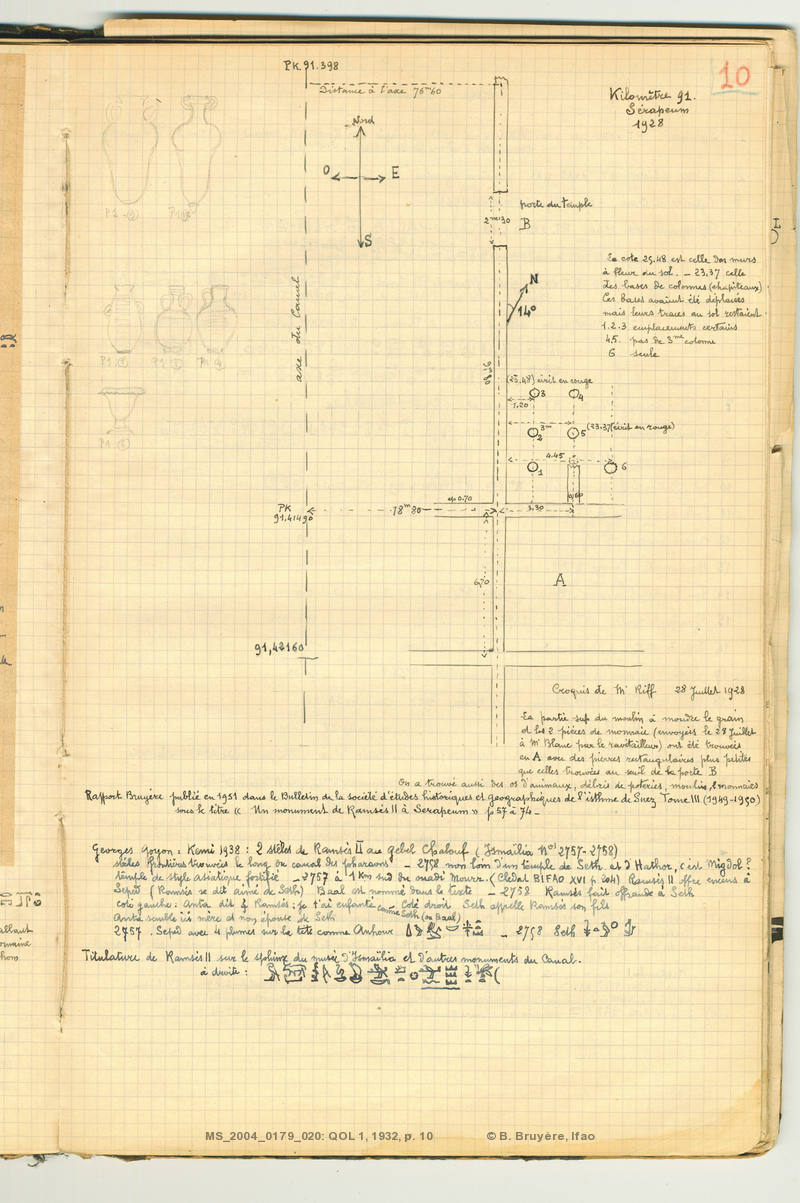 10
PK. 91.398
Distance à l'axe 76m60
Kilomètre 91.
Sérapeum
1928
Nord
O
E
S
porte du temple
B
2m30
La cote 25.48 est celle des murs
à fleur du sol. _ 23.37 celle
des bases de colonnes (chapiteaux)
Ces bases avaient été déplacées
mais leurs traces au sol restaient
1.2.3 emplacements certains
4.5. pas de 3me colonne
6 seule
N
14°
axe du Canal
(25.48) écrit en rouge
3
4
1.20
3m
2
5
(23.37 écrit en rouge)
4.45
1
6
0.60
ep 0.70
PK
91,41490
78m80
3.30
6,70
A
91,42160
Croquis de Mr Riff 28 Juillet 1928
La partie sup du moulin à moudre le grain
et les 2 pièces de monnaie (envoyées le 28 Juillet
à Mr Blanc par le ravitailleur) ont été trouvées
en A avec des pierres rectangulaires plus petites
que celles trouvées au seuil de la porte B
On a trouvé aussi des os d'animaux, débris de poteries, moulins, & monnaies
Rapport Bruyère publié en 1951 dans le Bulletin de la société d'études historiques et géographiques de l'isthme de Suez Tome III (1949-1950)
sous le titre « Un monument de Ramsès II à Serapeum » p 57 à 74 _
Georges Goyon : Kemi 1938 : 2 stèles de Ramsès II au Gebel Chalouf (Ismaïlia Nos 2757-2758)
stèles frontières trouvées le long du canal des pharaons _ 2758 non loin d'un temple de Seth et d'Hathor, c'est Migdol ?
temple de style asiatique fortifié _ 2757 à 1 Km sud du ouadi Mourr. (Clédat BIFAO XVI p. 204) Ramsès II offre encens à
Seped (Ramsès se dit aimé de Seth) Baal est nommé dans le texte _ 2758 Ramsès fait offrande à Seth
coté gauche : Anta dit à Ramsès : je t'ai enfanté comme Seth (ou Baal) Coté droit Seth appelle Ramsès son fils
Anta semble ici mère et non épouse de Seth
2757 . Seped avec 4 plumes sur la tête comme Anhour _ 2758 Seth
Titulature de Ramsès II sur le sphinx du musée d'Ismaïlia et d'autres monuments du Canal.
à droite :
P1
P1
P1
P1
P1
P1
MS_2004_0179_020: QOL 1, 1932, p. 10 © B. Bruyère, Ifao